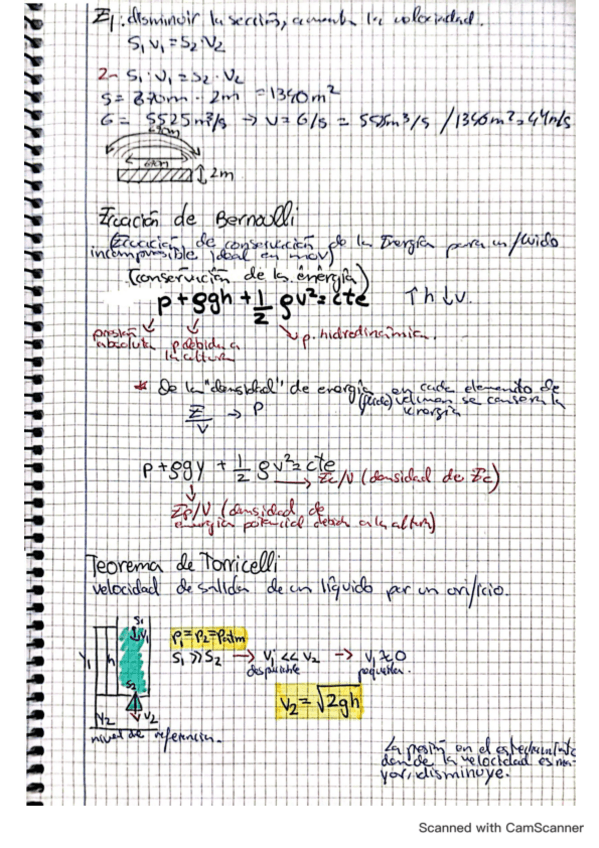 E1: disminuir la sección, aumenta la velocidad.
S₁V₁ = S₂·V₂
2- S₁·V₁ = S₂·V₂
S = 670m · 2m = 1340m²
G = 5525m³/s → V = G/S =
2m
Ecuación de Bernoulli
Ecuación de conservación de la Energía para un fluido
incompresible ideal en mov)
(conservación de la energía)
p + ρgh + 1/2 ρv² = cte ↑h ↓v.
presión absoluta
p debida a la altura
p. hidrodinámica.
* De la "densidad" de energía en cada elemento de
(fluido) volumen se conserva la
energía
E/V → P
p + ρgy + 1/2 ρv² = cte
→ Ec/V (densidad de Ec)
Ep/V (densidad de
energía potencial debida a la altura)
Teorema de Torricelli
velocidad de salida de un líquido por un orificio.
S₁
V₁
Y₁
h
S₂
Y₂
V₂
nivel de referencia.
P₁=P₂=Patm
S₁ >> S₂ → V₁ << V₂ → V₁ ≈ 0
V₂ = √2gh
La presión en el estrechamiento
donde la velocidad es ma-
yor, disminuye.
Scanned with CamScanner